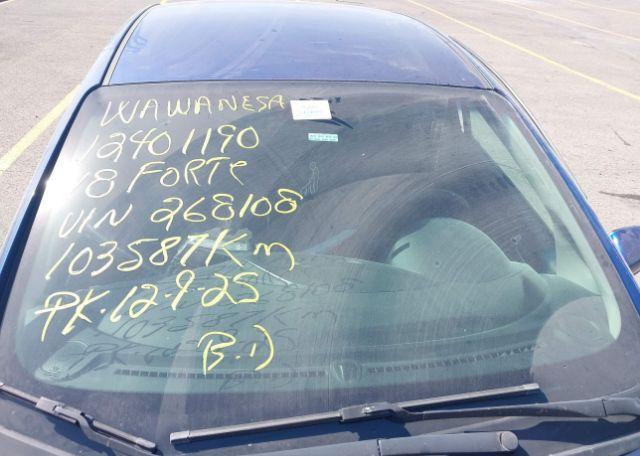 WAWANESA
12401190
18 FORTE
VIN 268108
103587Km
PK.12-9-25
B.1)